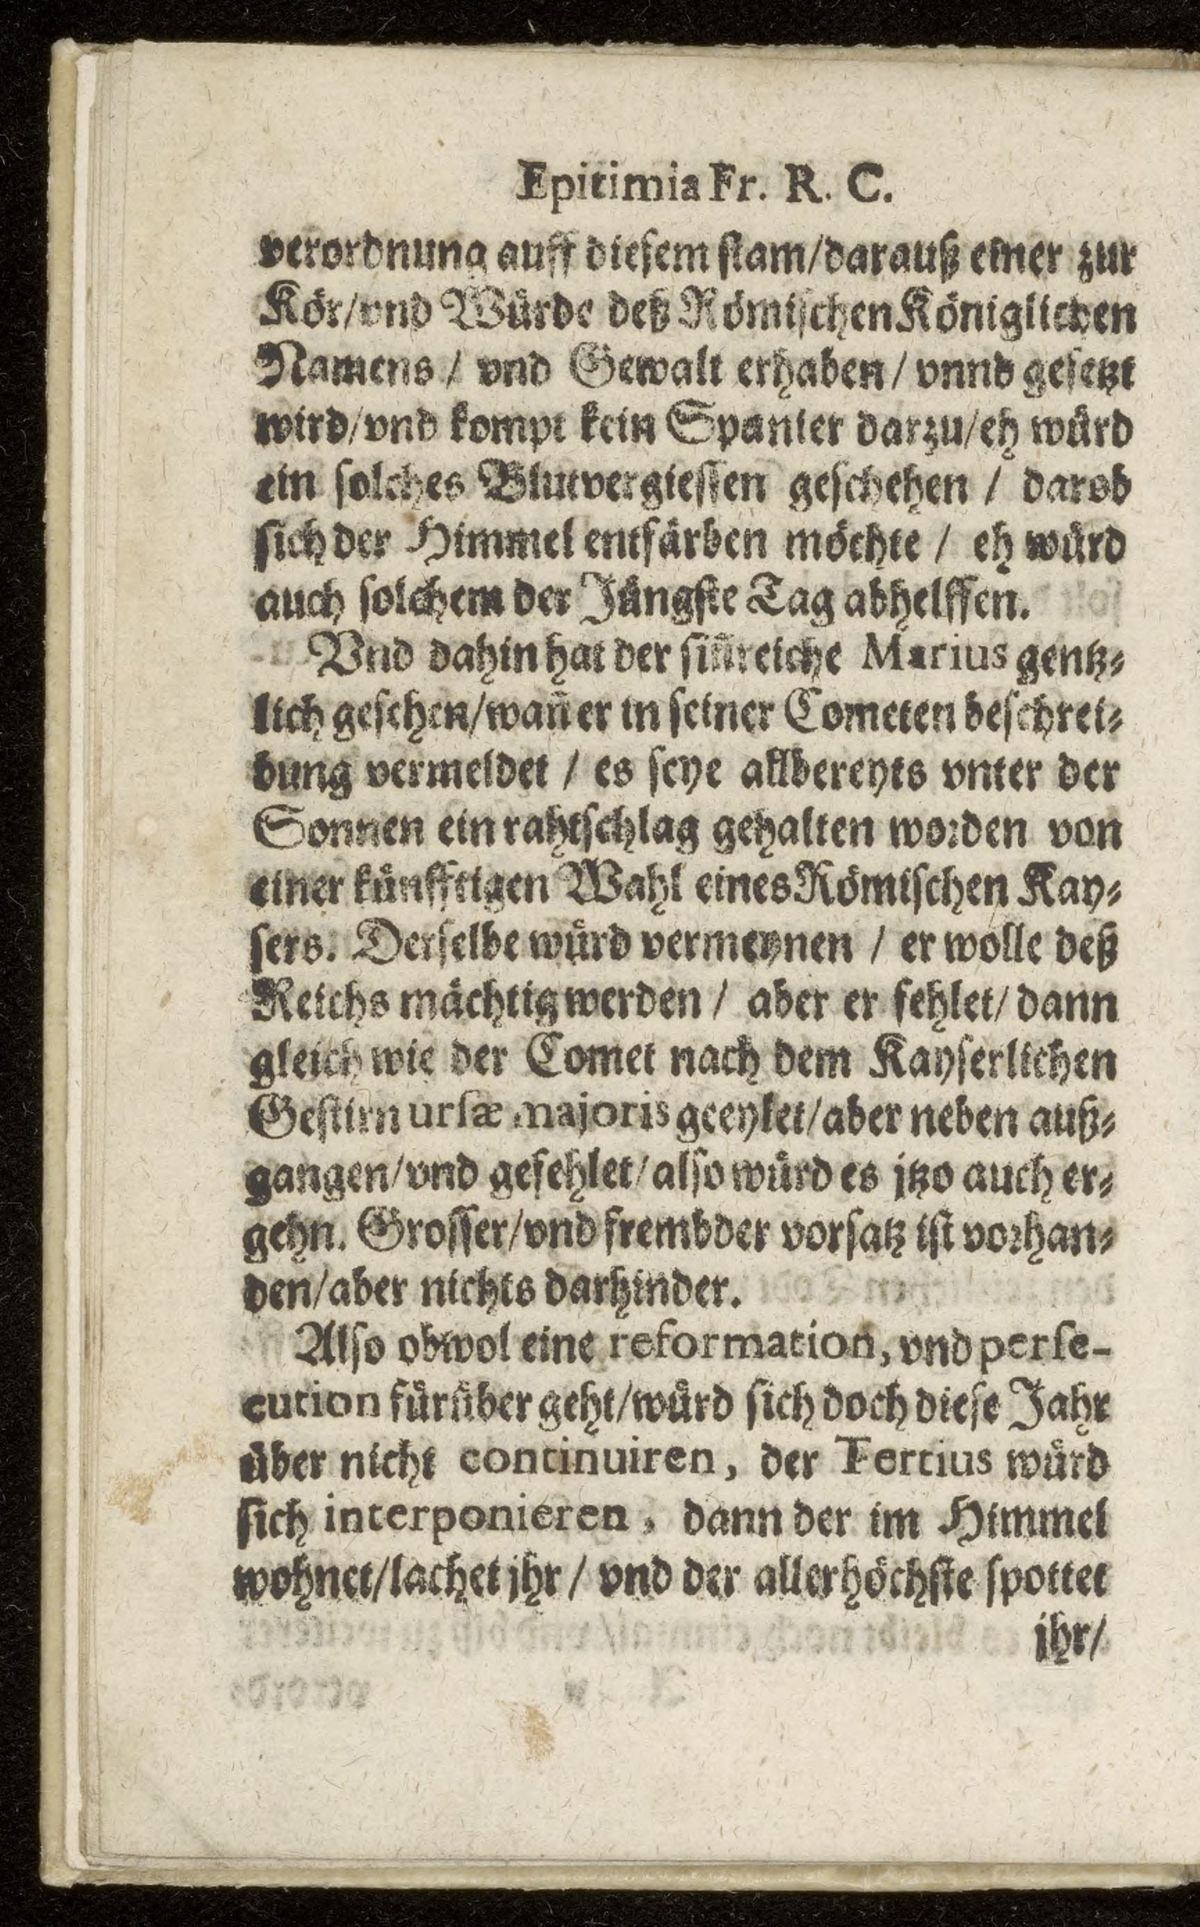 Epitimia Fr. R. C.
verordnung auff diesem stam/darauß einer zur
Kör/vnd Würde deß Römischen Königlichen
Namens / vnd Gewalt erhaben / vnnd gesetzt
wird/vnd kompt kein Spanier darzu/eh würd
ein solches Blutvergiessen geschehen / darob
sich der Himmel entfärben möchte / eh würd
auch solchem der Jüngste Tag abhelffen.
Vnd dahin hat der siñreiche Marius gentz-
lich gesehen/wañ er in seiner Cometen beschrei-
bung vermeldet / es seye allbereyts vnter der
Sonnen ein rahtschlag gehalten worden von
einer künfftigen Wahl eines Römischen Kay-
sers. Derselbe würd vermeynen / er wolle deß
Reichs mächtig werden / aber er fehlet/ dann
gleich wie der Comet nach dem Kayserlichen
Gestirn ursæ majoris geeylet/aber neben auß-
gangen/vnd gefehlet/also würd es jtzo auch er-
gehn. Grosser/vnd frembder vorsatz ist vorhan-
den/aber nichts darhinder.
Also obwol eine reformation, vnd perse-
cution fürüber geht/würd sich doch diese Jahr
über nicht continuiren, der Tertius würd
sich interponieren, dann der im Himmel
wohnet/lachet jhr / vnd der allerhöchste spottet
jhr/